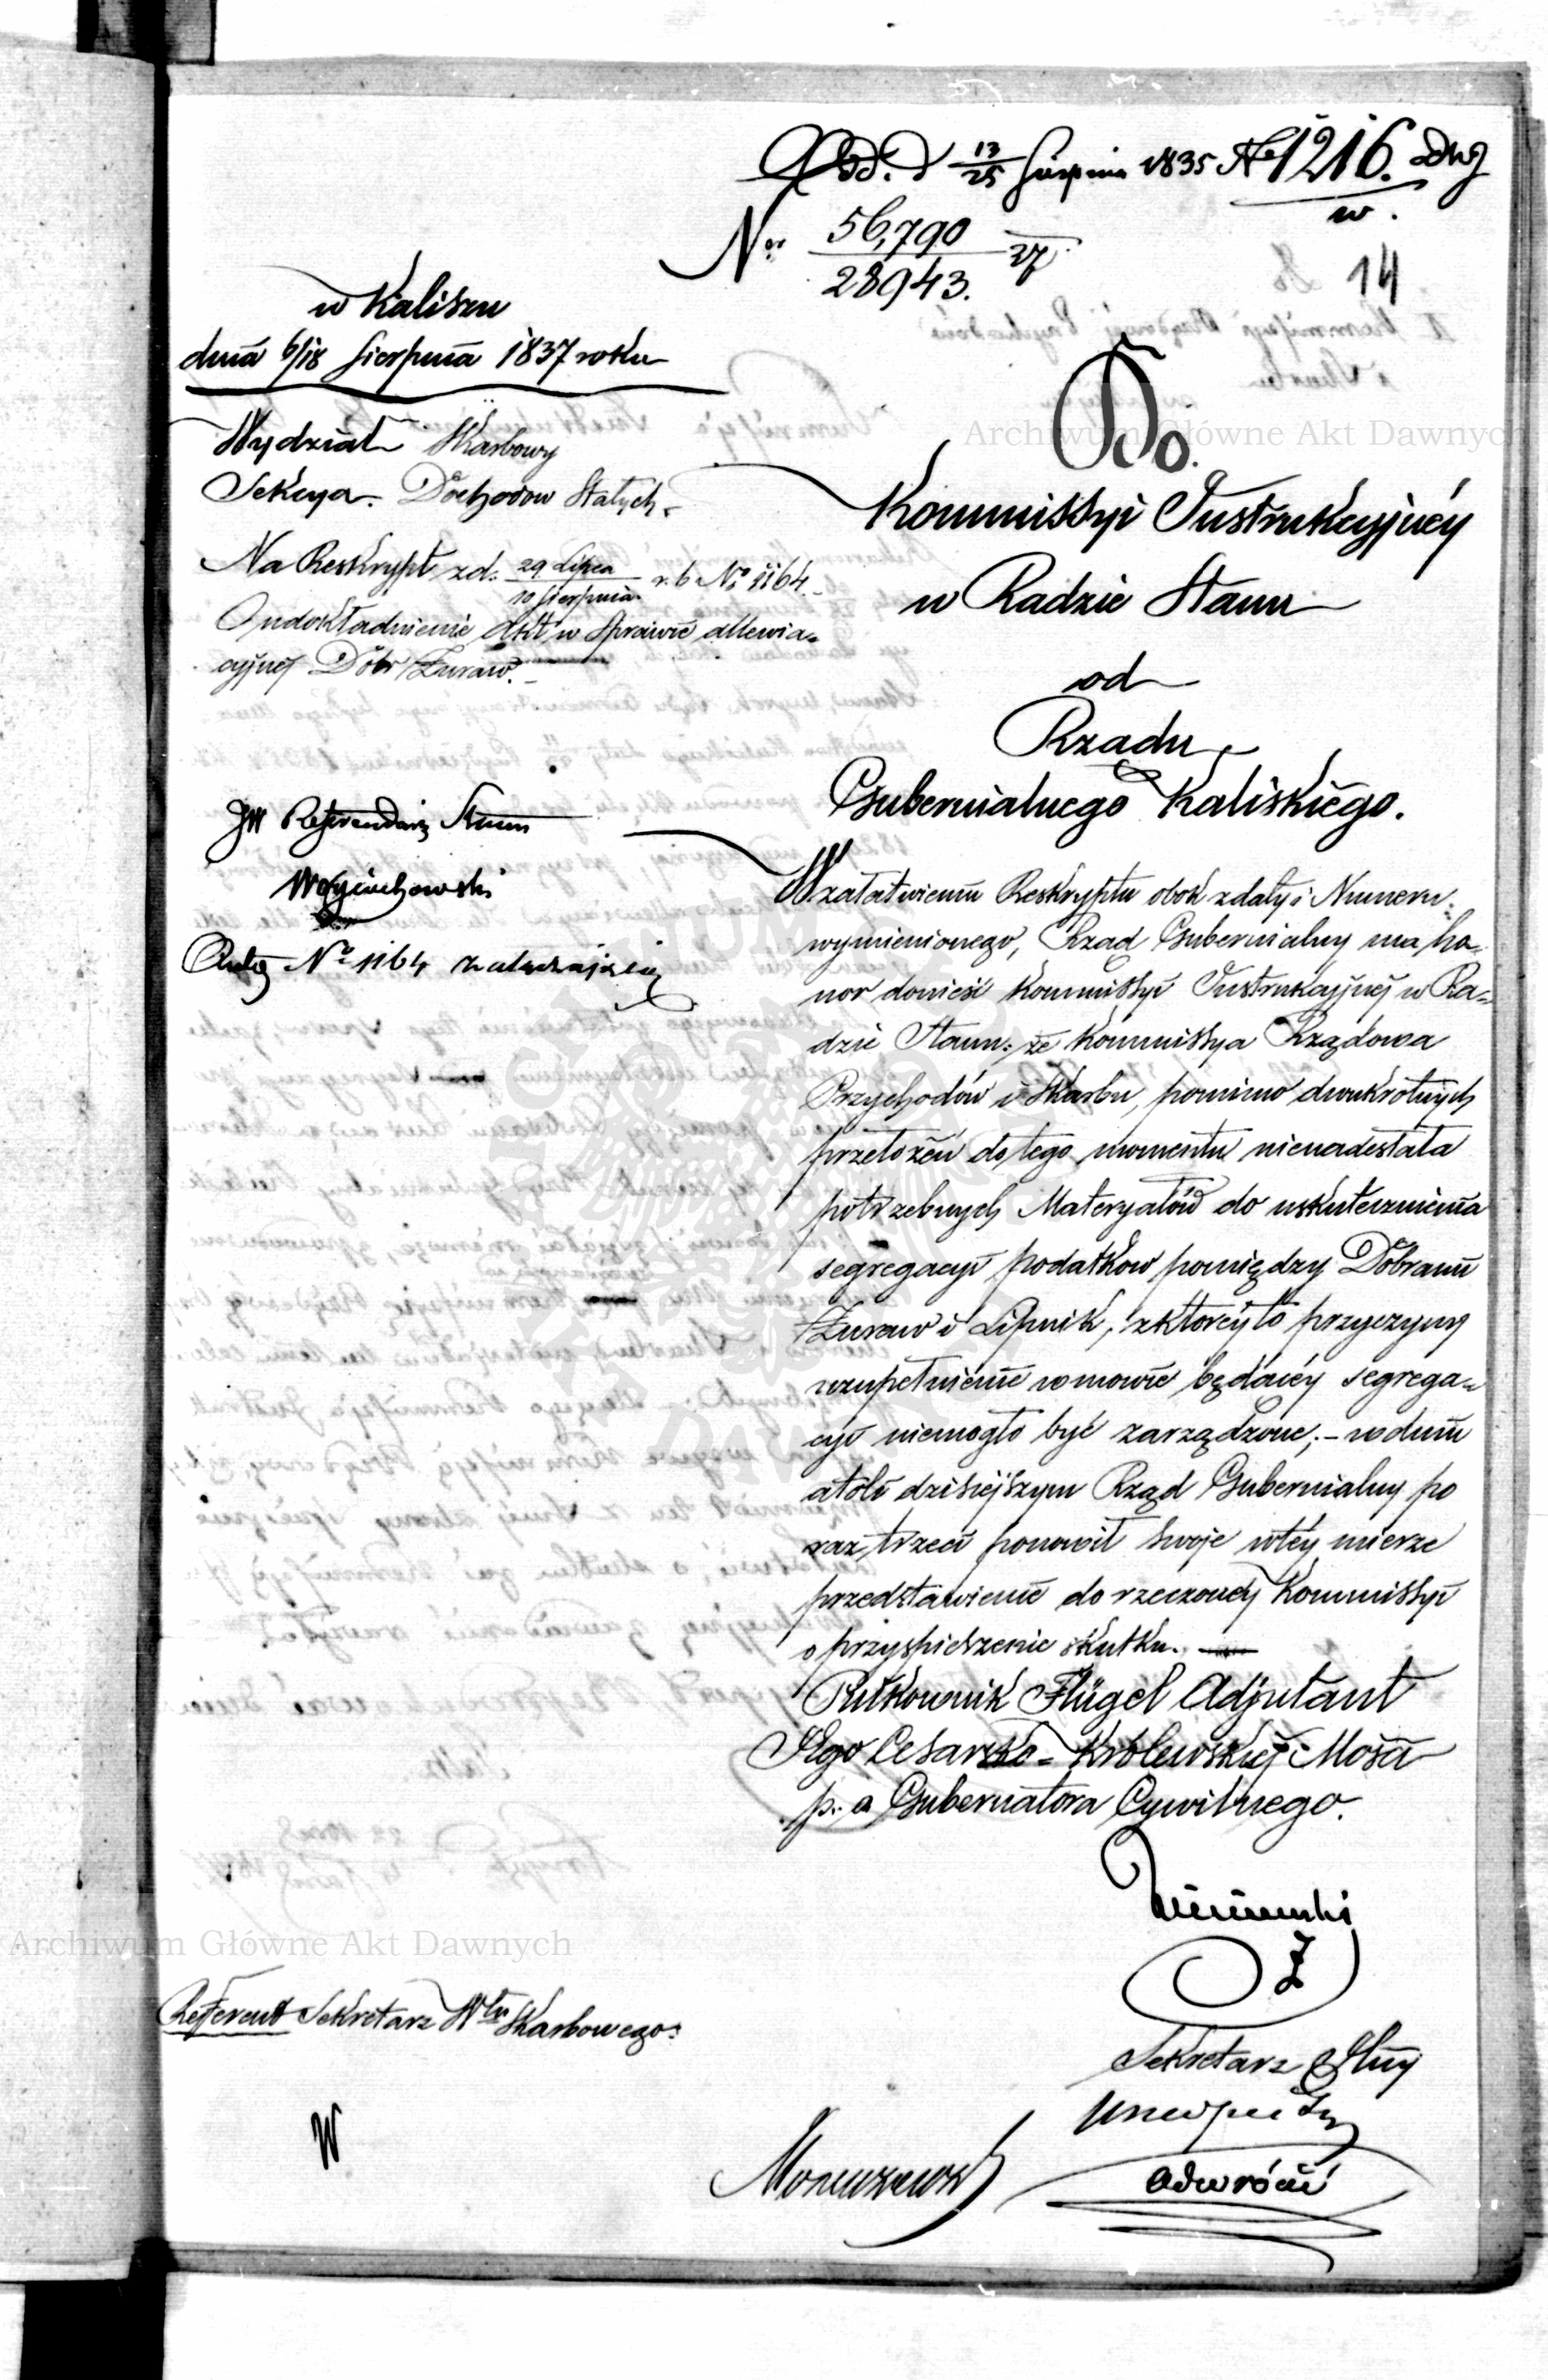 d. 13/25 Sierpnia 1835 № 1216.
w.
Nr. 56,790 / 28943. 27
14
w Kaliszu
dnia 6/18 Sierpnia 1837 roku
Wydział Skarbowy
Sekcya Dochodow Stałych.
Na Reskrypt z d. 29 Lipca / 10 Sierpnia r. b. Nr 1164.
O udokładnienie Akt w Sprawie allewia=
cyjnej Dóbr Żuraw.
JW Referendarz Stanu
Woyciechowski
Nr 1164
Do.
Kommissyi Instrukcyjnéy
w Radzie Stanu
od
Rządu
Gubernialnego Kaliskiégo.
W załatwieniu Reskryptu obok z daty i Numeru
wymienionego, Rząd Gubernialny ma ho=
nor donieść Kommissyi Instrukcyjnéj w Ra=
dzie Stanu: że Kommissya Rządowa
Przychodów i Skarbu, pomimo dwukrotnych
przełożeń do tego momentu nienadesłała
potrzebnych Materyałów do uskutecznienia
segregacyi podatkow pomiędzy Dobrami
Żuraw i Lipnik, z ktoréy to przyczyny
uzupełniénie w mowie będącéy segrega=
cyi niemogło być zarządzone; – w dniu
atóli dzisiéjszym Rząd Gubernialny po
raz trzeci ponowił swoje w téy mierze
przedstawienie do rzeczonéy Kommissyi
o przyspieszenie skutku.
Pułkownik Flügel Adjutant
Jego Cesarsko-Królewskiéj Mości
p. o. Gubernatora Cywilnego.
Sekretarz
Referent Sekretarz Włu Skarbowego:
W
odwrócić
Archiwum Główne Akt Dawnych
Archiwum Główne Akt Dawnych
ARCHIWUM GŁÓWNE AKT DAWNYCH